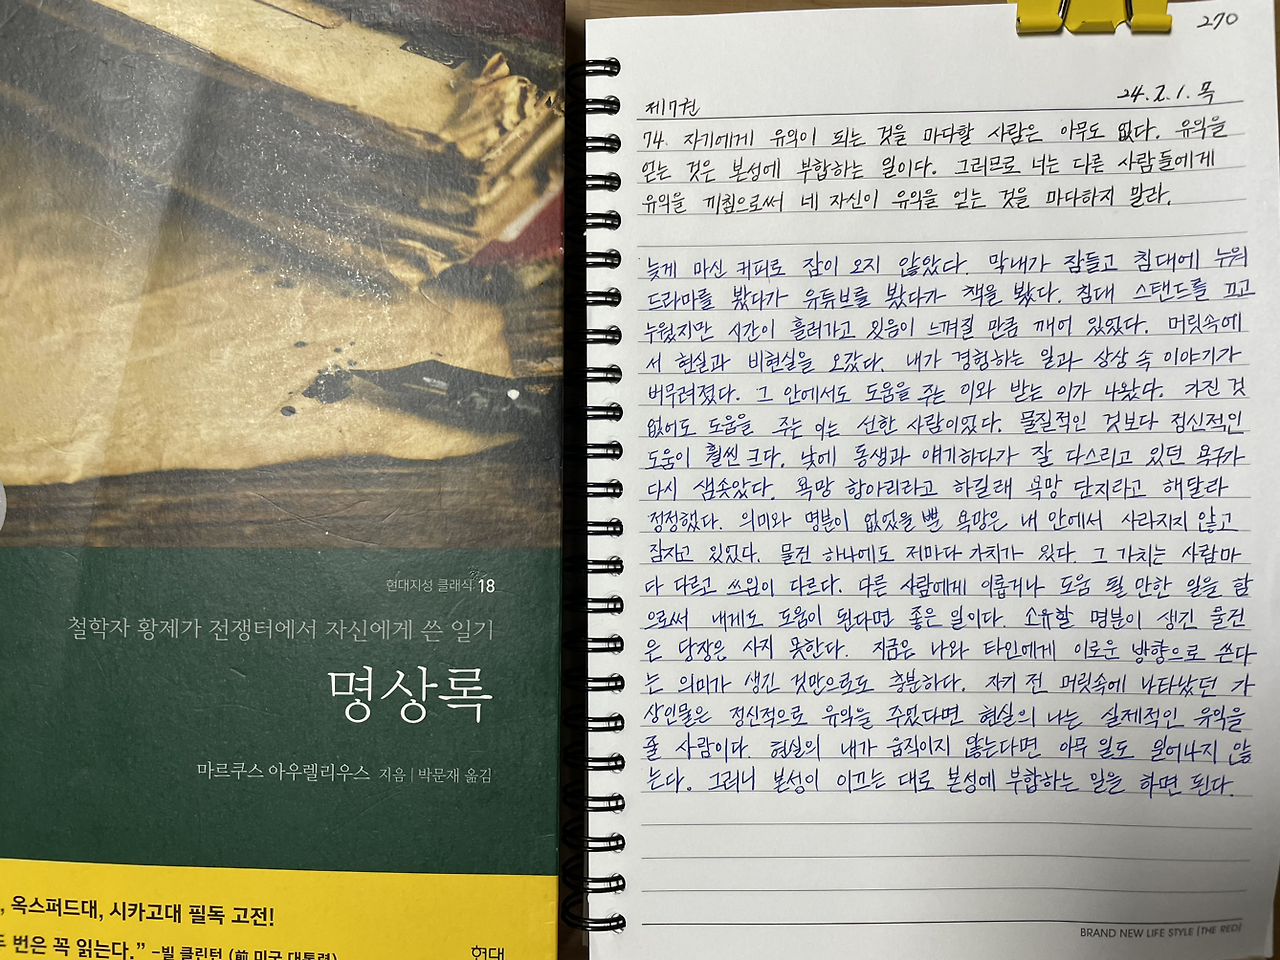 현대지성 클래식 18
철학자 황제가 전쟁터에서 자신에게 쓴 일기
명상록
마르쿠스 아우렐리우스 지음 | 박문재 옮김
, 옥스퍼드대, 시카고대 필독 고전!
번은 꼭 읽는다.” -빌 클린턴 (前 미국 대통령)
현대
270
24. 2. 1. 목
제7권
74. 자기에게 유익이 되는 것을 마다할 사람은 아무도 없다. 유익을
얻는 것은 본성에 부합하는 일이다. 그러므로 너는 다른 사람들에게
유익을 끼침으로써 네 자신이 유익을 얻는 것을 마다하지 말라.
늦게 마신 커피로 잠이 오지 않았다. 막내가 잠들고 침대에 누워
드라마를 봤다가 유튜브를 봤다가 책을 봤다. 침대 스탠드를 끄고
누웠지만 시간이 흘러가고 있음이 느껴질 만큼 깨어 있었다. 머릿속에
서 현실과 비현실을 오갔다. 내가 경험하는 일과 상상 속 이야기가
버무려졌다. 그 안에서도 도움을 주는 이와 받는 이가 나왔다. 가진 것
없어도 도움을 주는 이는 선한 사람이었다. 물질적인 것보다 정신적인
도움이 훨씬 크다. 낮에 동생과 얘기하다가 잘 다스리고 있던 욕구가
다시 샘솟았다. 욕망 항아리라고 하길래 욕망 단지라고 해달라
정정했다. 의미와 명분이 없었을 뿐 욕망은 내 안에서 사라지지 않고
잠자고 있었다. 물건 하나에도 저마다 가치가 있다. 그 가치는 사람마
다 다르고 쓰임이 다르다. 다른 사람에게 이롭거나 도움 될 만한 일을 함
으로써 내게도 도움이 된다면 좋은 일이다. 소유할 명분이 생긴 물건
은 당장은 사지 못한다. 지금은 나와 타인에게 이로운 방향으로 쓴다
는 의미가 생긴 것만으로도 충분하다. 자기 전 머릿속에 나타났던 가
상인물은 정신적으로 유익을 주었다면 현실의 나는 실제적인 유익을
줄 사람이다. 현실의 내가 움직이지 않는다면 아무 일도 일어나지 않
는다. 그러니 본성이 이끄는 대로 본성에 부합하는 일을 하면 된다.
BRAND NEW LIFE STYLE [THE RED]